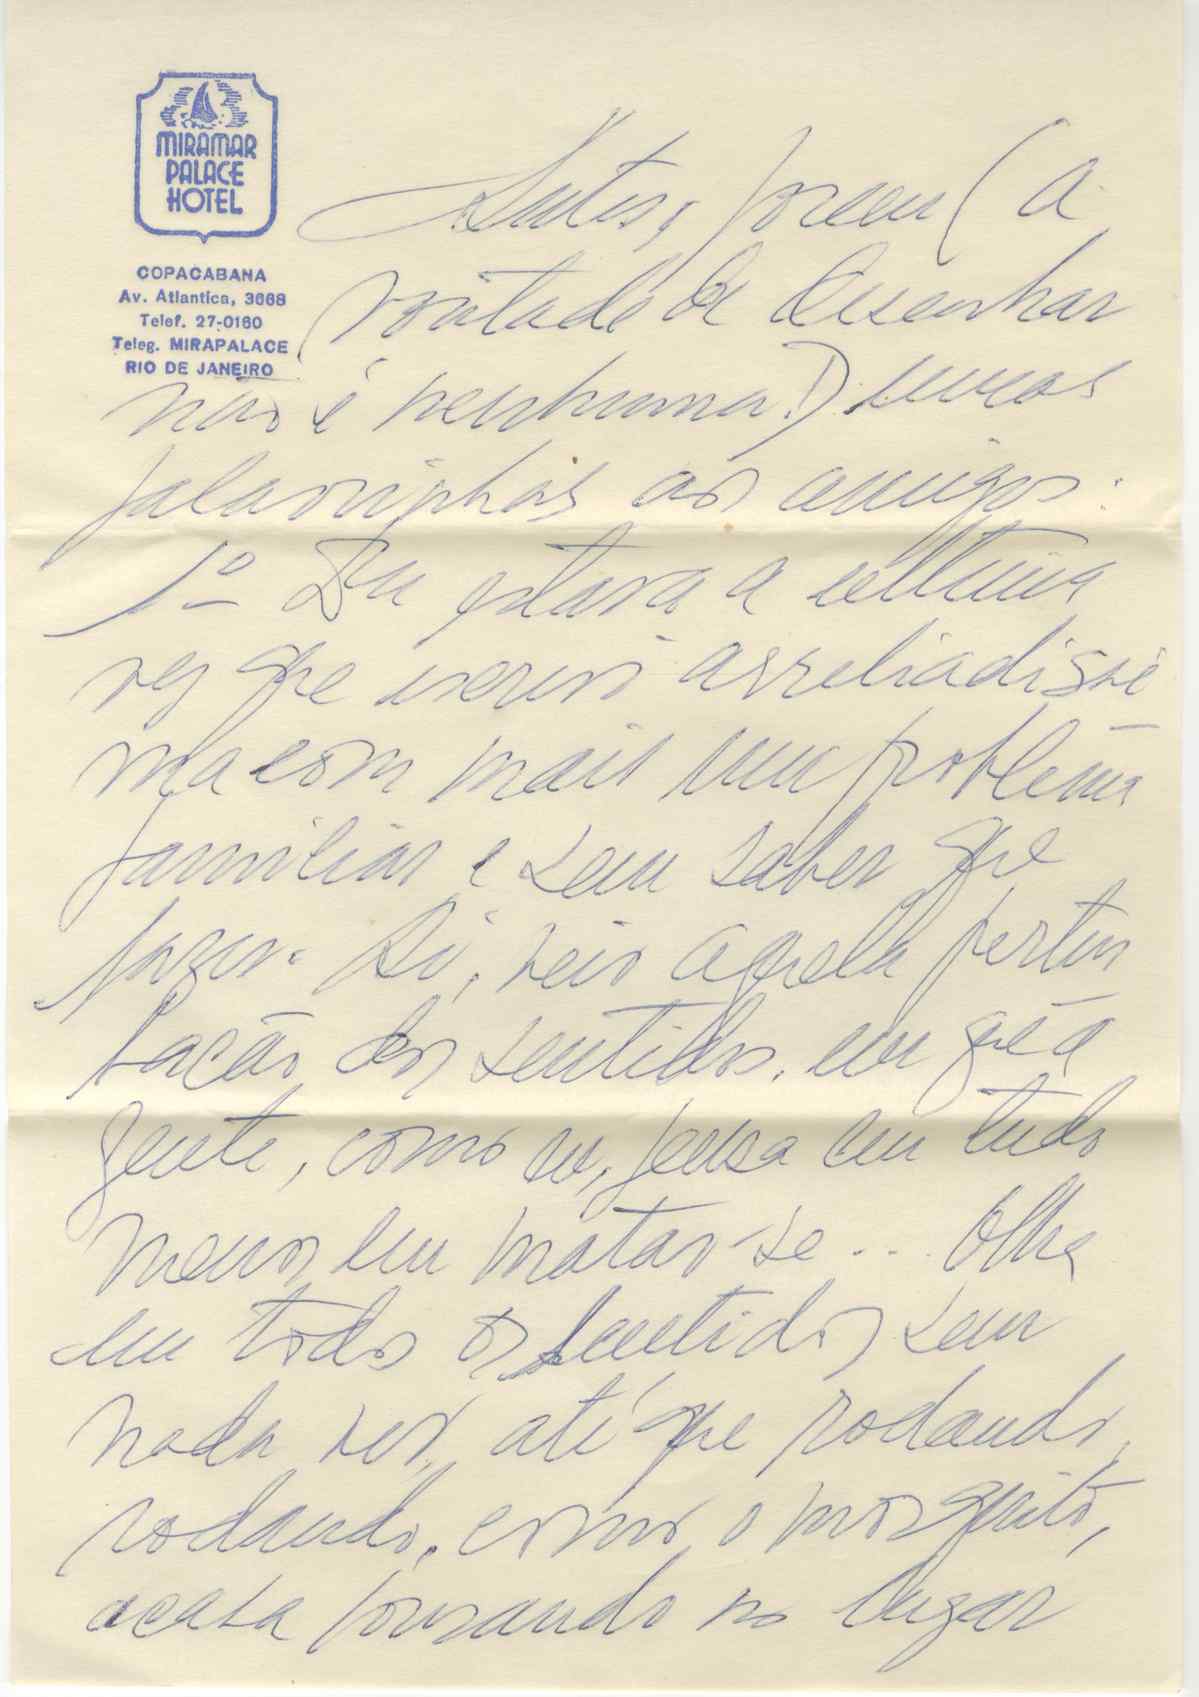 MIRAMAR
PALACE
HOTEL
COPACABANA
Av. Atlantica, 3668
Telef. 27-0160
Teleg. MIRAPALACE
RIO DE JANEIRO
Antes, porem (a
vontade de desenhar
não é nenhuma!) umas
palavrinhas aos amigos:
1º Eu estava a ultima
vez que escrevi arreliadissi
ma com mais um problema
familiar e sem saber que
fazer. Aí, veio aquela pertur
bação dos sentidos, em que a
gente, como eu, pensa em tudo
menos em matar-se... Olha
em todos os sentidos sem
nada ver, até que rodando,
rodando, como o mosquito,
acaba pousando no lugar